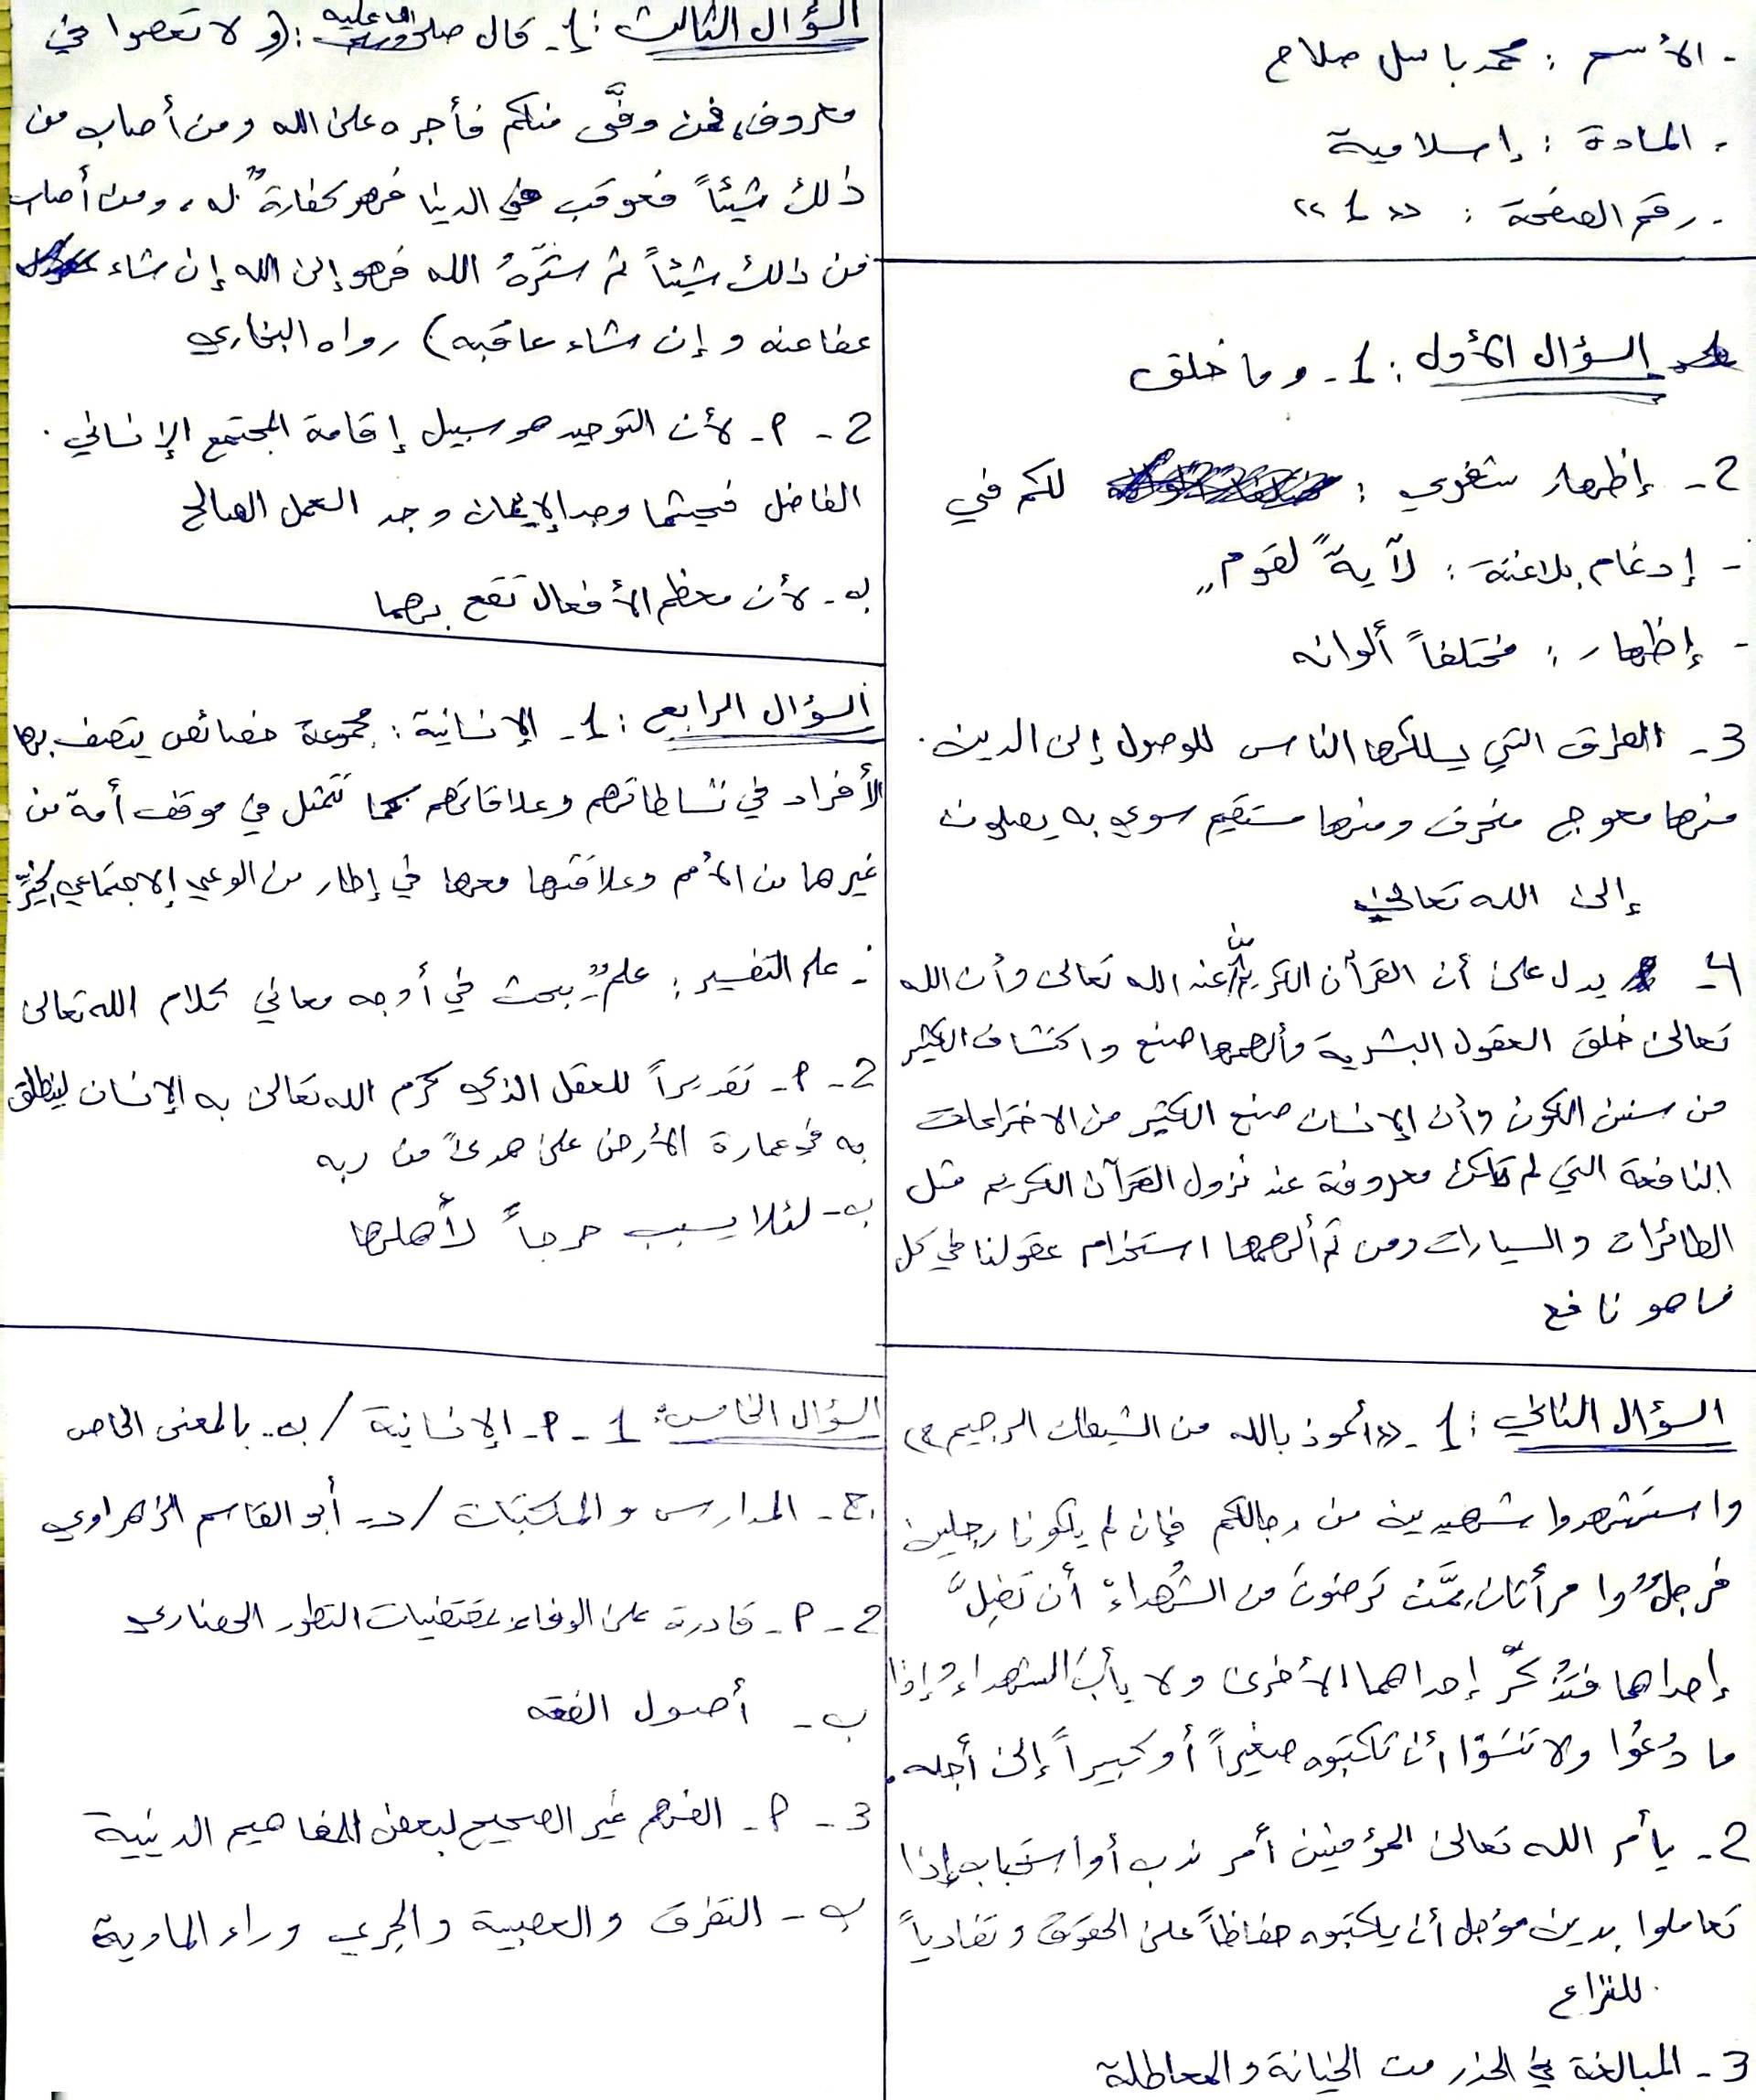 - الأسم : محمد باسل صلاح
- المادة : إسلامية
- رقم الصفحة : «1»
السؤال الأول : 1- وما خلق
2- إظهار شفوي : لكم في
- إدغام بلاغنة : لآيةً لقوم
- إظهار : مختلفاً ألوانه
3- الطرق التي يسلكها الناس للوصول إلى الدين .
منها معوج منحرف ومنها مستقيم سوي به يصلون
إلى الله تعالى
4- يدل على أن القرأن الكريم من عند الله تعالى وأن الله
تعالى خلق العقول البشرية وألهمها صنع واكتشاف الكثير
من سنن الكون وأن الإنسان صنع الكثير من الاختراعات
النافعة التي لم تكن معروفة عند نزول القرآن الكريم مثل
الطائرات والسيارات ومن ثم ألهمها استخدام عقولنا في كل
ما هو نافع
السؤال الثاني : 1- «أعوذ بالله من الشيطان الرجيم»
واستشهدوا شهيدين من رجالكم فإن لم يكونا رجلين
فرجلٌ وا مرأتان ممَّن ترضونَ من الشُهداءِ أن تَضِلَّ
إحداهما فتُذكِّرَ إحداهما الأخرى ولا يأبَ الشهداءُ إذا
ما دُعُوا ولا تسَئَموا أن تكتبوه صغيراً أو كبيراً إلى أجله .
2- يأمر الله تعالى المؤمنين أمر ندب أو استحباب إذا
تعاملوا بدين مؤجل أن يكتبوه حفاظاً على الحقوق وتفادياً
للنزاع
3- المبالغة في الحذر من الخيانة والمماطلة
السؤال الثالث : 1- قال صلى الله عليه وسلم : (ولا تعصوا في
معروف، فمن وفَّى منكم فأجره على الله ومن أصاب من
ذلك شيئاً فعوقب في الدنيا فهو كفارةٌ له، ومن أصاب
من ذلك شيئاً ثم سَتَرَهُ الله فهو إلى الله إن شاء
عفا عنه وإن شاء عاقبه) رواه البخاري
2- أ- لأن التوحيد هو سبيل إقامة المجتمع الإنساني .
الفاضل فحيثما وجد الإيمان وجد العمل الصالح
ب- لأن معظم الأفعال تقع بهما
السؤال الرابع : 1- الإنسانية : مجموعة خصائص يتصف بها
الأفراد في نشاطاتهم وعلاقاتهم كما تتمثل في موقف أمة من
غيرها من الأُمم وعلاقتها معها في إطار من الوعي الإجتماعي الخيِّر
- علم التفسير : علمٌ يبحث في أوجه معاني كلام الله تعالى
2- أ- تقديراً للعقل الذي كرم الله تعالى به الإنسان لينطلق
به في عمارة الأرض على هدىً من ربه
ب- لئلا يسبب حرجاً لأهلها
السؤال الخامس : 1- أ- الإنسانية / ب- بالمعنى الخاص
ج- المدارس والمكتبات / د- أبو القاسم الزهراوي
2- أ- قادرة على الوفاء بمقتضيات التطور الحضاري
ب- أصول الفقه
3- أ- الفهم غير الصحيح لبعض المفاهيم الدينية
ب- التفرق والعصبية والجري وراء المادية